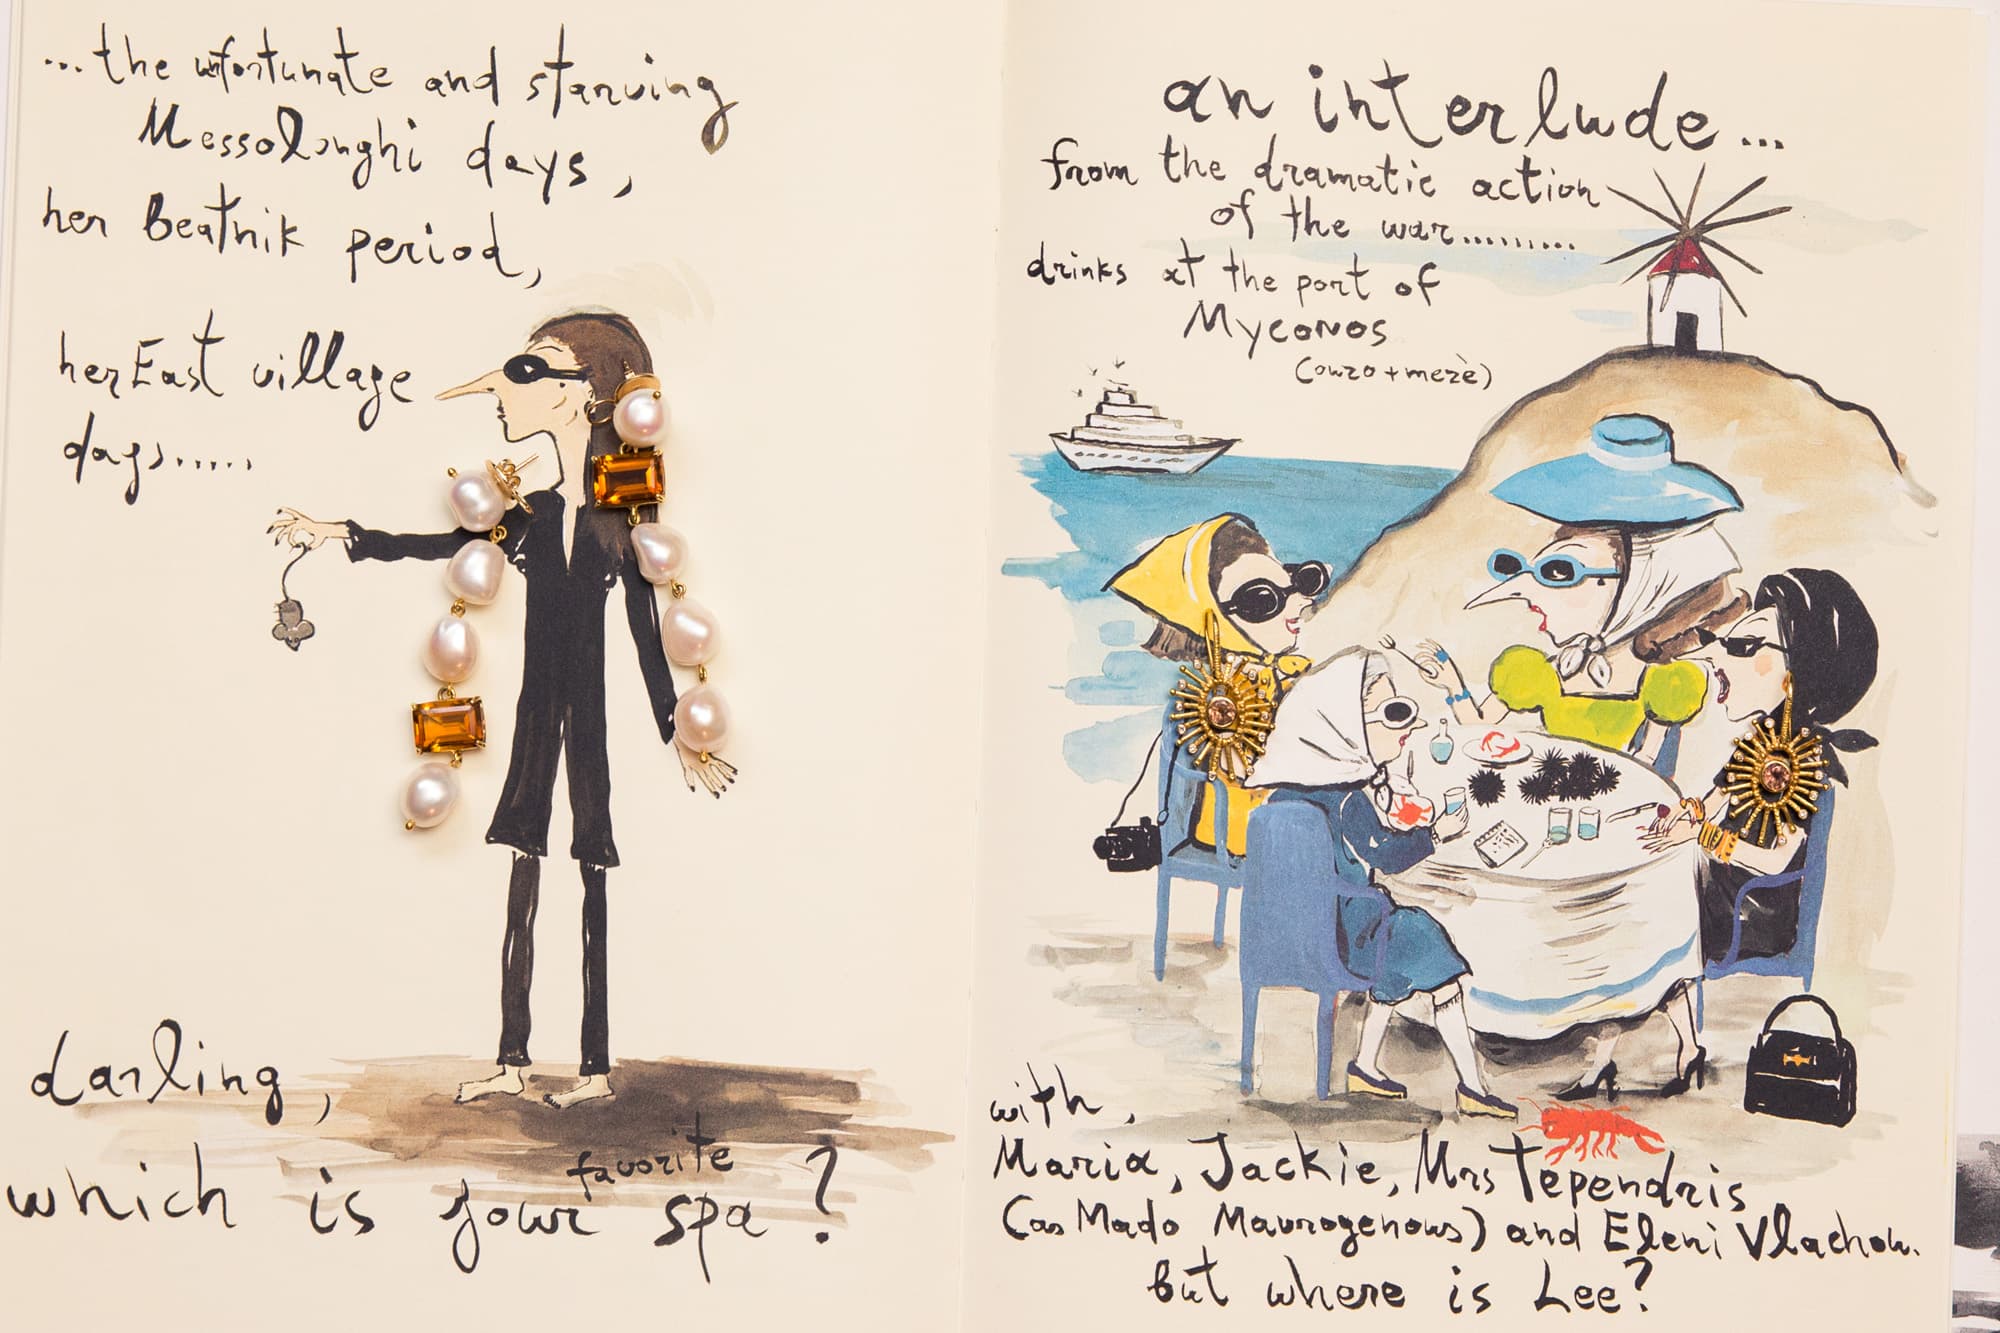 ...the unfortunate and starving
Messolonghi days,
her Beatnik period,
her East village
days.....
darling,
which is your favorite spa?
an interlude...
from the dramatic action
of the war..........
drinks at the port of
Myconos
(ouzo + mezè)
with,
Maria, Jackie, Mrs Tependris
(as Mado Mavrogenous) and Eleni Vlachou.
but where is Lee?